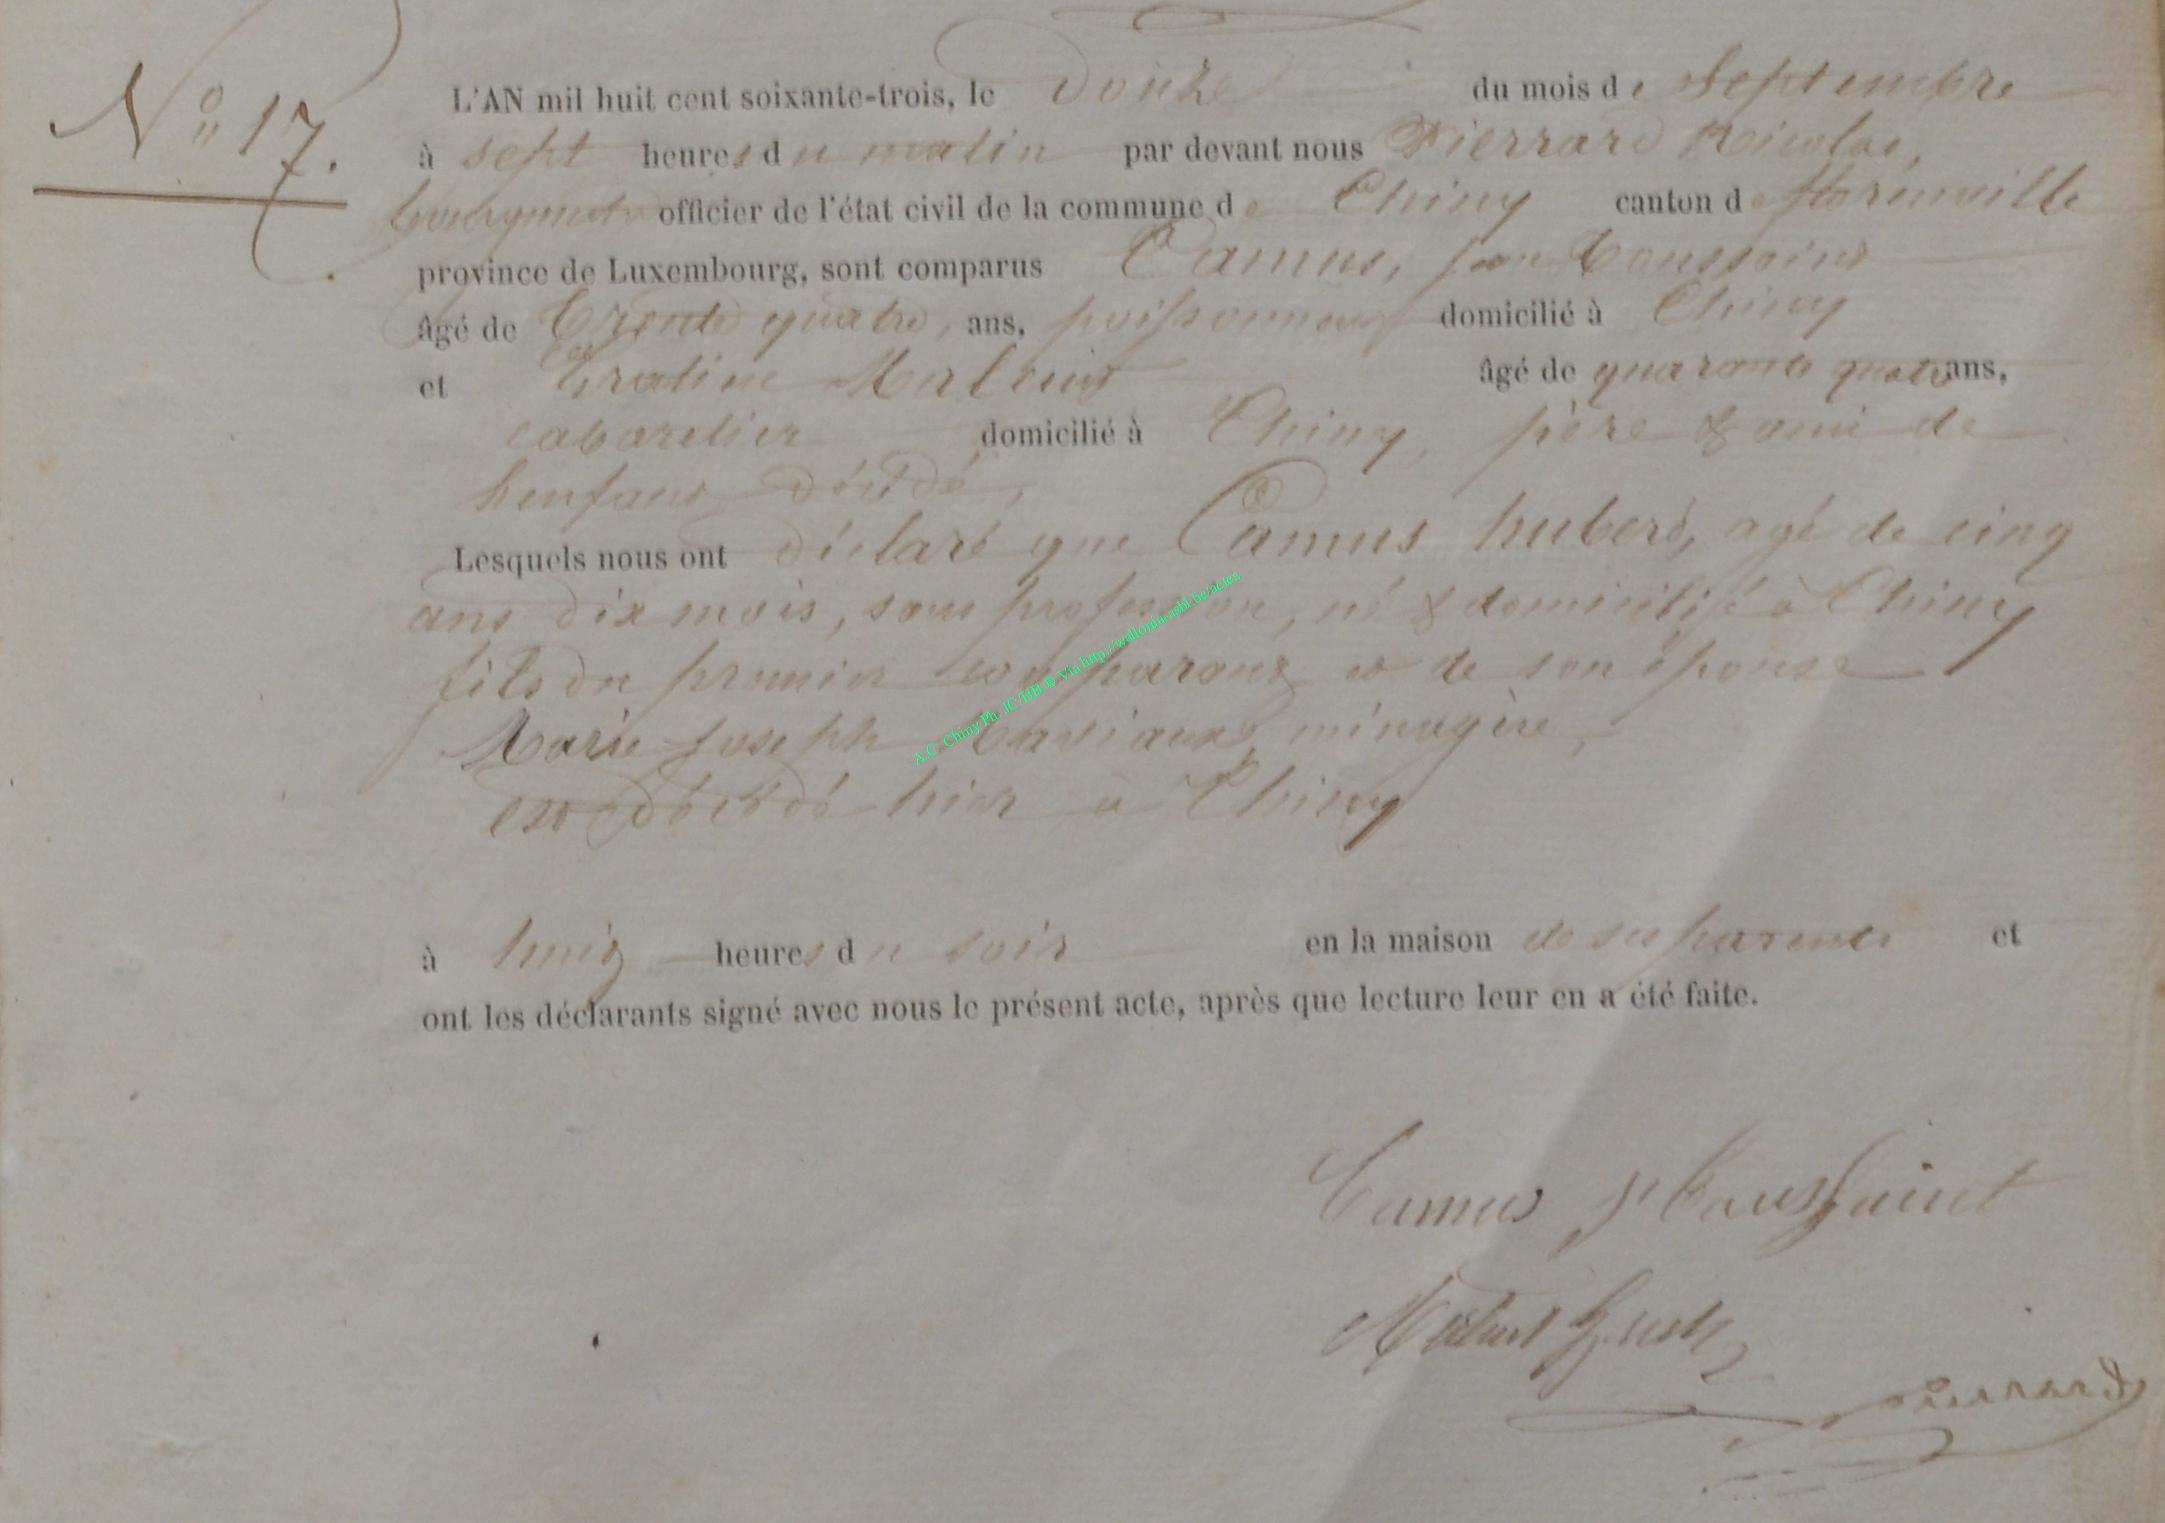 N° 17.
L'AN mil huit cent soixante-trois, le Douze du mois de Septembre
à sept heures du matin par devant nous Pierrard Nicolas,
bourgmestre officier de l'état civil de la commune de Chiny canton de florenville
province de Luxembourg, sont comparus Camus, jean toussaint
âgé de trente quatre, ans, poissonneur domicilié à Chiny
et Malcuit âgé de quarante quatre ans,
cabaretier domicilié à Chiny, père & ami de
l'enfant décédé,
Lesquels nous ont déclaré que Camus hubert, agé de cinq
ans dix mois, sans profession, né & domicilié à Chiny
fils du premier comparant et de son épouse
Marie joseph ménagère,
est décédé hier à Chiny
à huit heures du soir en la maison de ses parents et
ont les déclarants signé avec nous le présent acte, après que lecture leur en a été faite.
Camus j toussaint
Pierrard
A.C. Chiny Ph. JC/HB © Via http://wallonia-asbl.be/actes